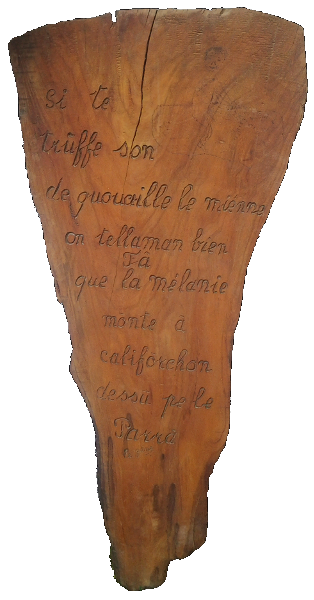 si te
truffe son
de quouaille le mienne
on tellaman bien
Fâ
que la mélanie
monte a
califorchon
dessu pe le
Parra